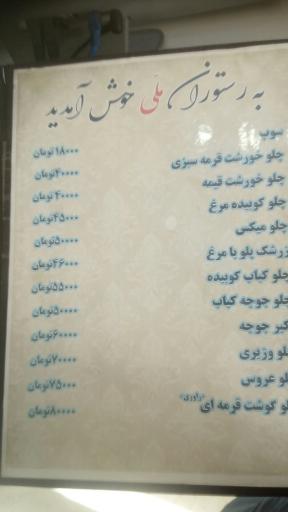 به رستوران ملی خوش آمدید
سوپ ۱۸۰۰۰تومان
چلو خورشت قرمه سبزی ۴۰۰۰۰تومان
چلو خورشت قیمه ۴۰۰۰۰تومان
چلو کوبیده مرغ ۴۵۰۰۰تومان
چلو میکس ۵۰۰۰۰تومان
زرشک پلو با مرغ ۴۶۰۰۰تومان
چلو کباب کوبیده ۵۵۰۰۰تومان
چلو جوجه کباب ۵۰۰۰۰تومان
کبر جوجه ۶۰۰۰۰تومان
لو وزیری ۷۰۰۰۰تومان
لو عروس ۷۵۰۰۰تومان
لو گوشت قرمه ای ۸۰۰۰۰تومان